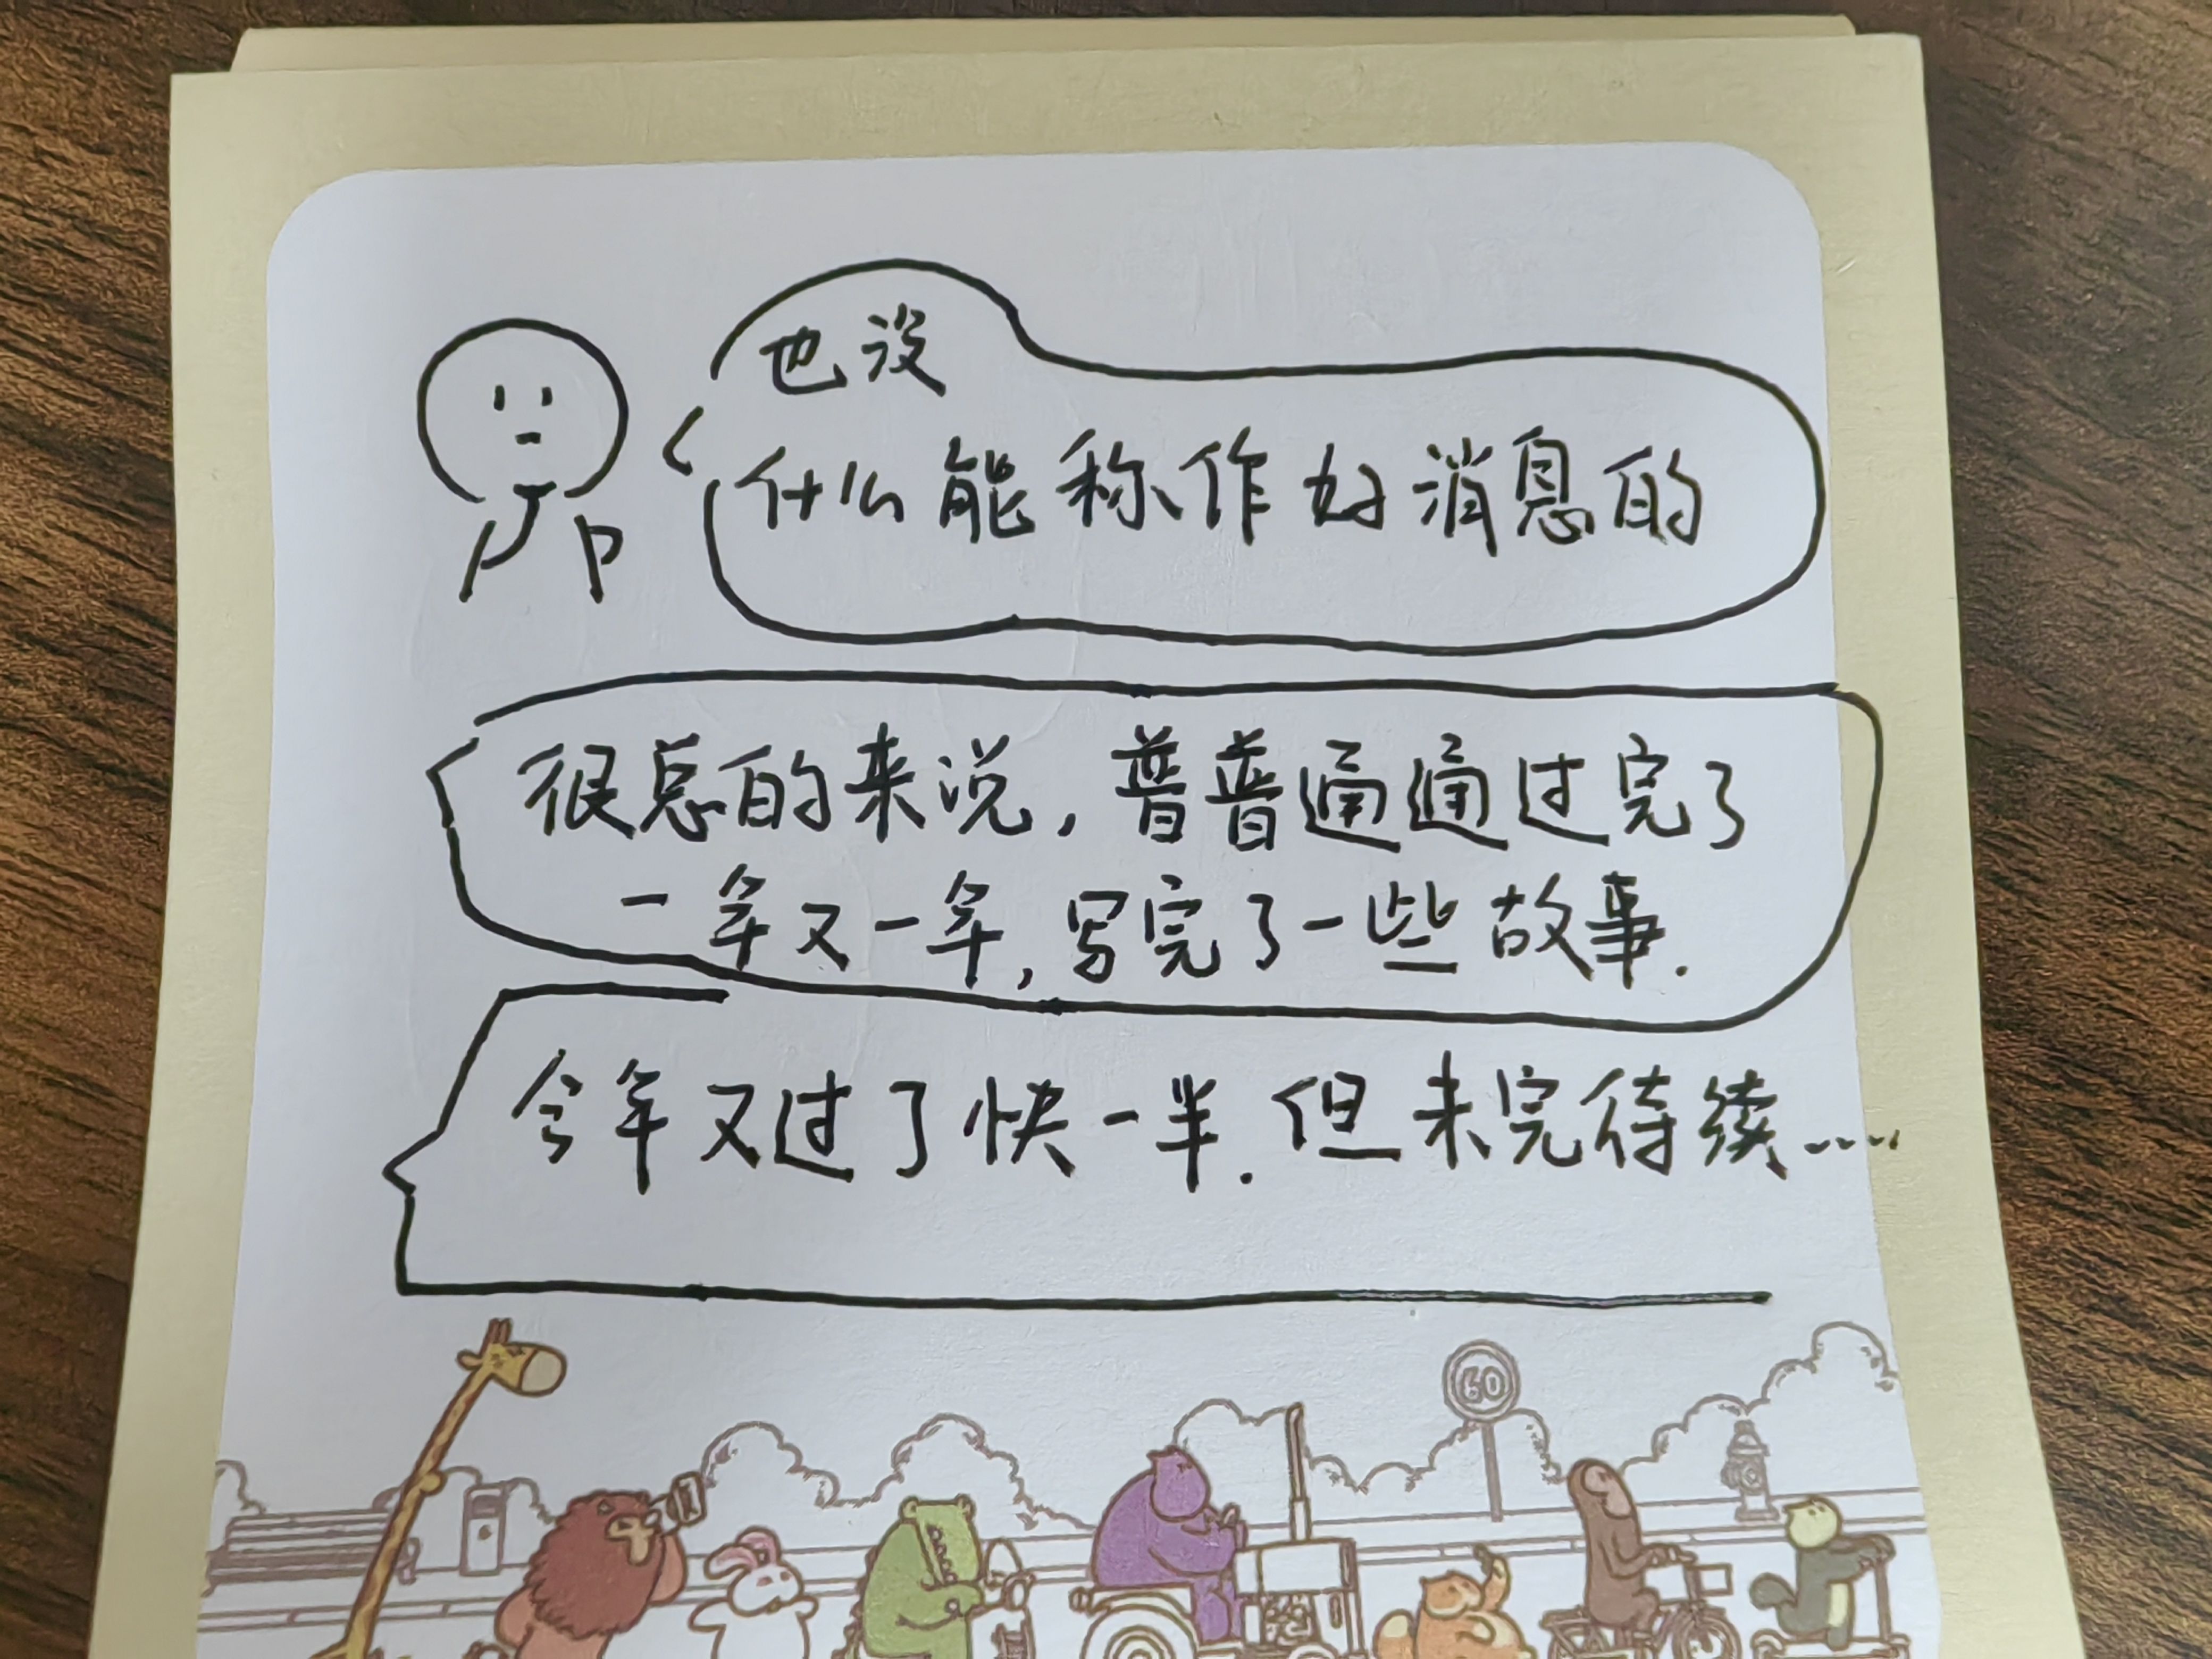 也没
什么能称作好消息的
很总的来说，普普通通过完了
一年又一年，写完了一些故事.
今年又过了快一半.但未完待续.....
60